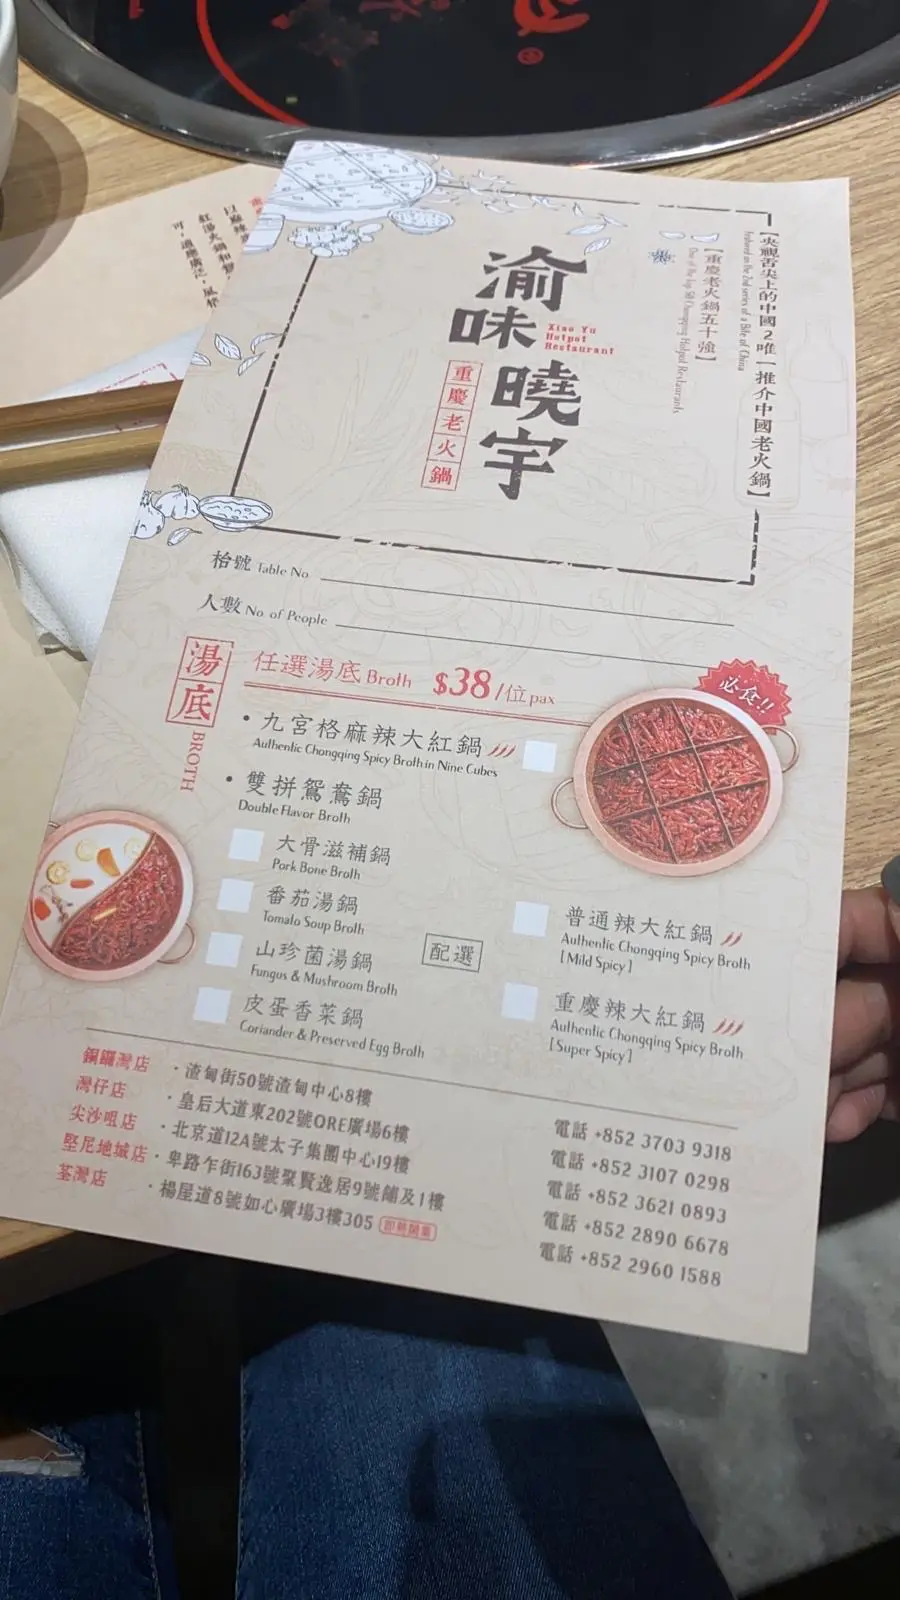 【央視舌尖上的中國2唯一推介中國老火鍋】
Featured on the 2nd series of a Bite of China
【重慶老火鍋五十強】
One of the top 50 Chongqing Hotpot Restaurants
渝味曉宇
Xiao Yu
Hotpot
Restaurant
重慶老火鍋
枱號 Table No.
人數 No. of People
湯底 BROTH
任選湯底 Broth $38/位 pax
必食!!
• 九宮格麻辣大紅鍋
Authentic Chongqing Spicy Broth in Nine Cubes
• 雙拼鴛鴦鍋
Double Flavor Broth
大骨滋補鍋
Pork Bone Broth
番茄湯鍋
Tomato Soup Broth
山珍菌湯鍋
Fungus & Mushroom Broth
皮蛋香菜鍋
Coriander & Preserved Egg Broth
配選
普通辣大紅鍋
Authentic Chongqing Spicy Broth
[Mild Spicy]
重慶辣大紅鍋
Authentic Chongqing Spicy Broth
[Super Spicy]
銅鑼灣店 · 渣甸街50號渣甸中心8樓 電話 +852 3703 9318
灣仔店 · 皇后大道東202號QRE廣場6樓 電話 +852 3107 0298
尖沙咀店 · 北京道12A號太子集團中心19樓 電話 +852 3621 0893
堅尼地城店 · 卑路乍街163號聚賢逸居9號舖及1樓 電話 +852 2890 6678
荃灣店 · 楊屋道8號如心廣場3樓305 即將開業 電話 +852 2960 1588